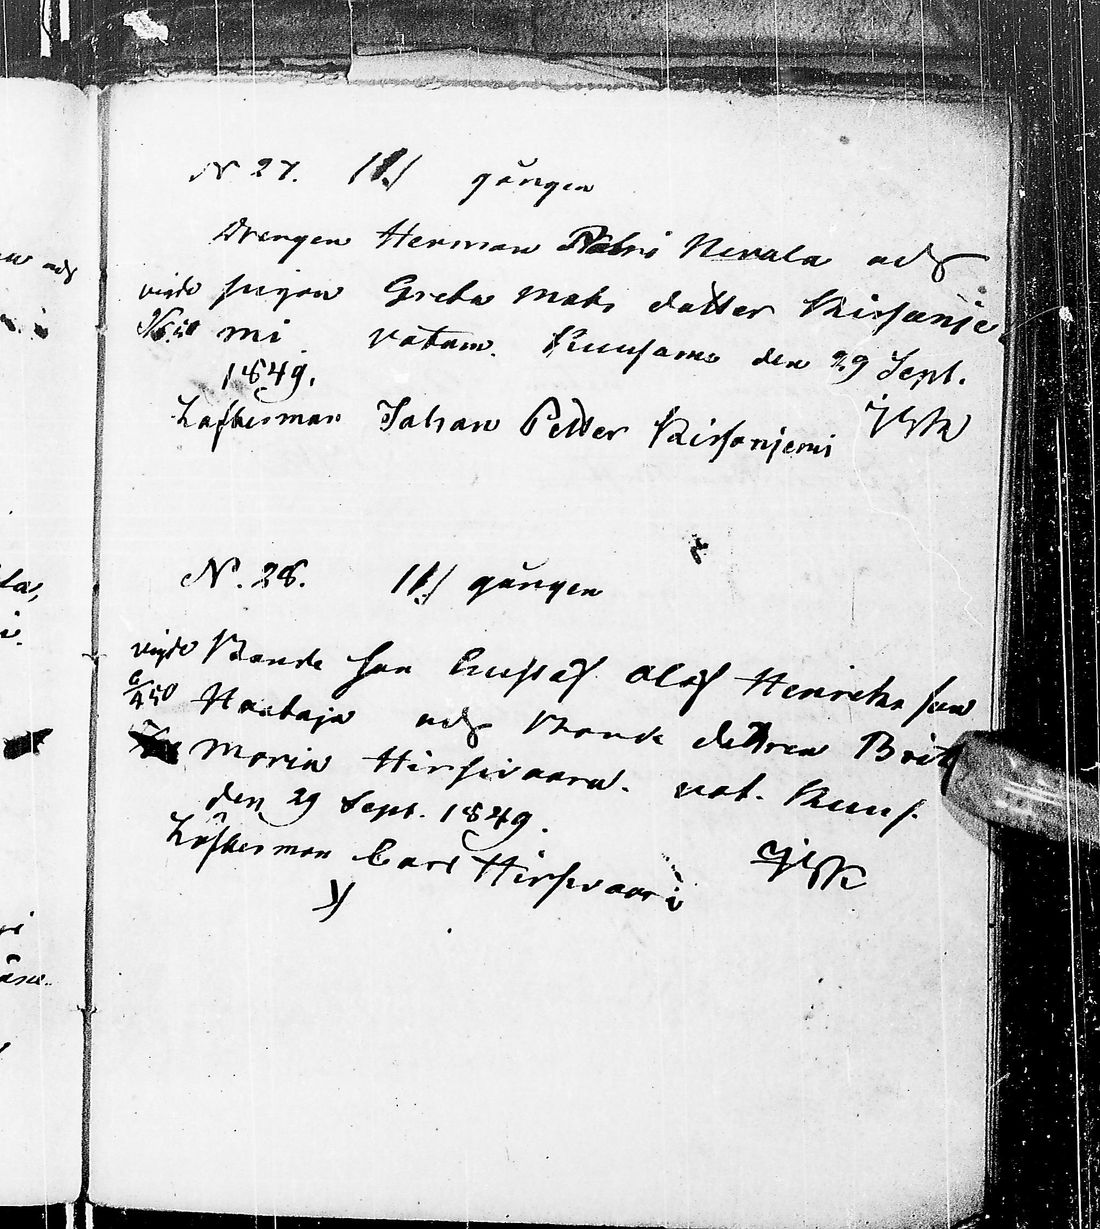 N 27. III gången
Drengen Herman Nevala och
vigde pigan Greta Mats datter Kisfanje
mi votum. Kuusamo den 29 Sept.
1849.
Löfterman Johan Petter Kisfanjemi
N. 28. III gången
vigde Bonde son Gustaf Olof Henriks son
6/4 50 Hautaja och Bonde dottren Brita
Maria Hirsivaara. vot. Kuus.
den 29 Sept. 1849.
Löfterman Carl Hirsivaari